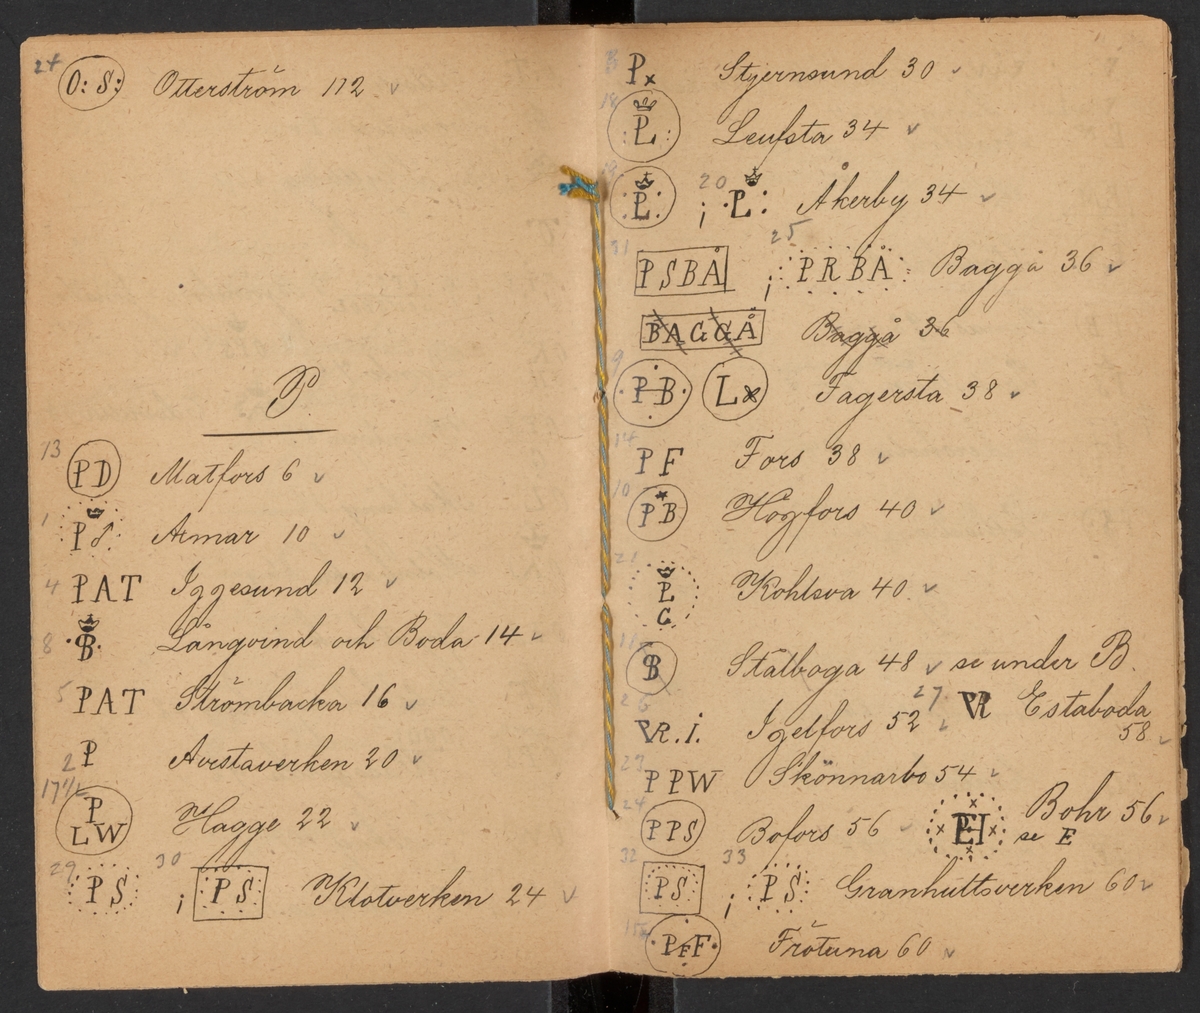 24 O: S: Otterström 112
P.
13 PD Matfors 6
1 P S. Armar 10
4 PAT Iggesund 12
8 ·B· Långvind och Boda 14
5 PAT Strömbacka 16
2 P Avestaverken 20
17½ P LW Hagge 22
29 PS ; 30 PS Klotverken 24
Px Stjernsund 30
18 :P: Leufsta 34
:P: ; 20 ·P: Åkerby 34
31 PSBÅ ; 25 PRBÅ Baggå 36
BAGGÅ Baggå 36
9 ·P-B· Lx Fagersta 38
14 PF Fors 38
10 P*B Högfors 40
21 P C Kohlsva 40
11 B Stålboga 48 se under B.
26 VR.i. Igelfors 52 27 VR Estaboda 58
23 PPW Skönnarbo 54
24 PPS Bofors 56 PEH Bohr 56 se E
32 PS ; 33 PS Granhultsverken 60
15 ·PFF· Frötuna 60